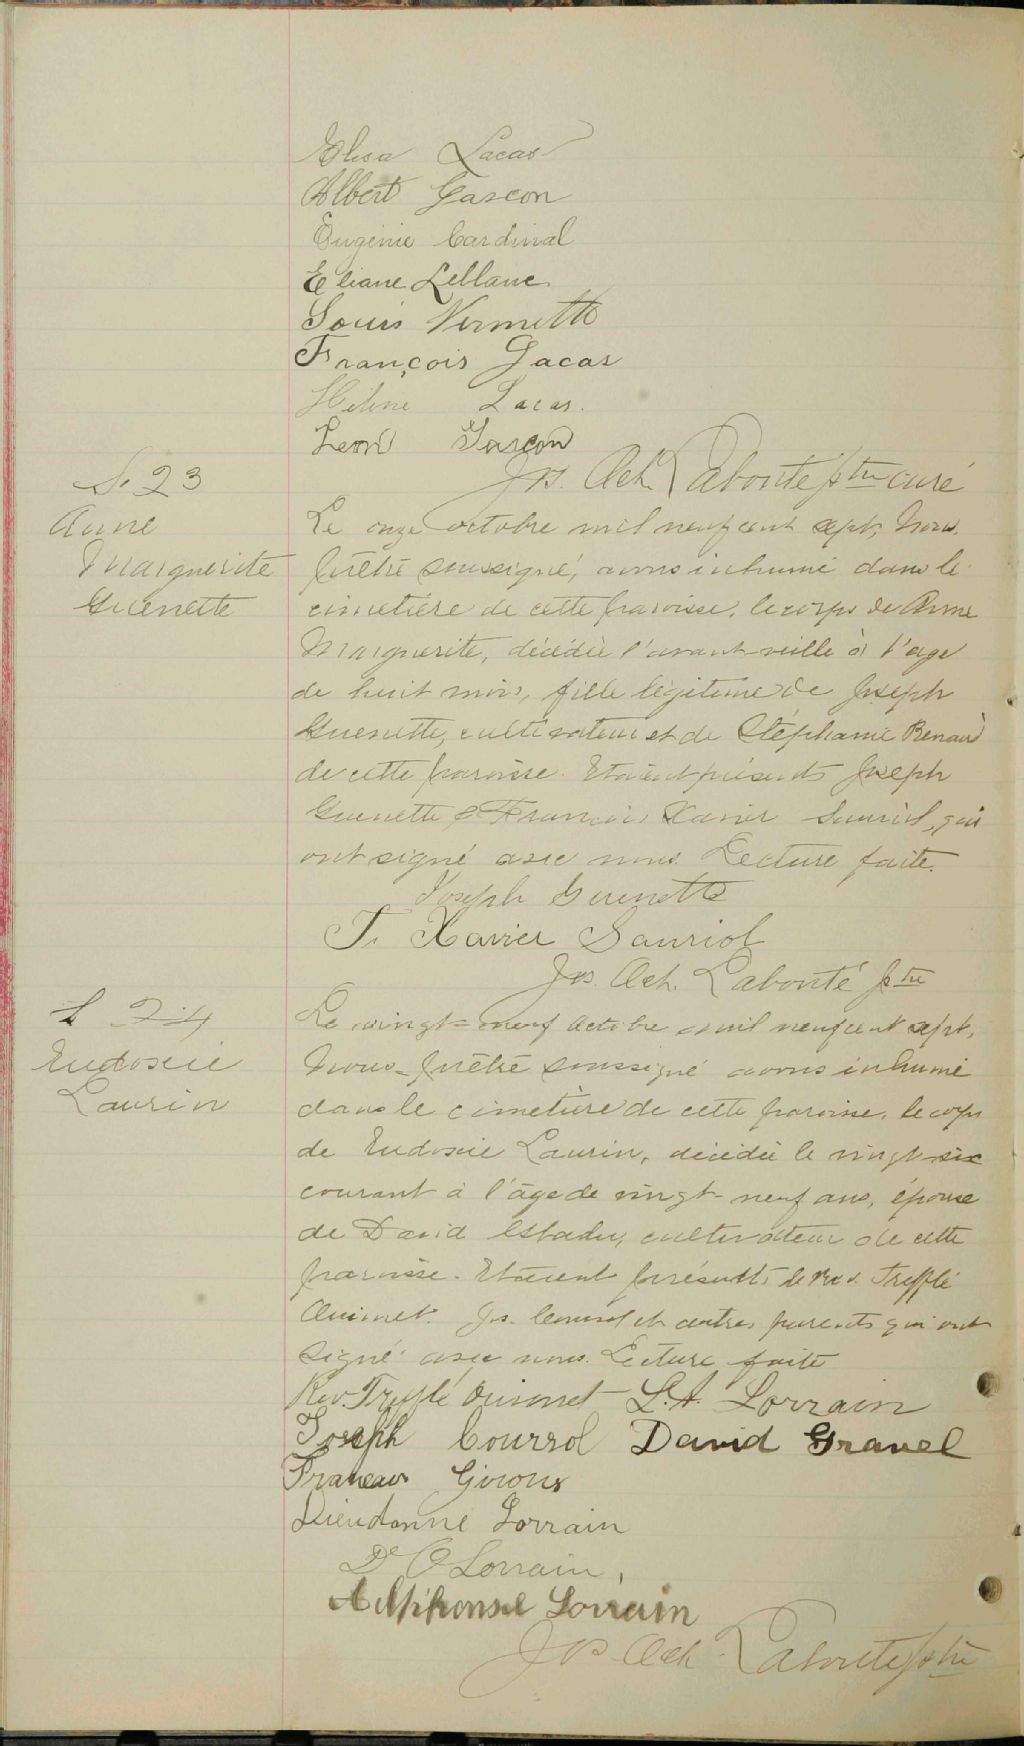 Elisa Lacas
Albert Gascon
Eugénie Cardinal
Eliane Leblanc
Louis Vermette
François Lacas
Hélène Lacas.
Leon Gascon
Jos. Ach. Labonté ptre curé
S. 23
Anne
Marguerite
Guenette
Le onze octobre mil neuf cent sept, Nous
prêtre soussigné, avons inhumé dans le
cimetière de cette paroisse, le corps de Anne
Marguerite, décédée l'avant-veille à l'age
de huit mois, fille légitime de Joseph
Guenette, cultivateur et de Stéphanie Renaud
de cette paroisse. Etaient présents Joseph
Guenette & François Xavier Sauriol, qui
ont signé avec nous. Lecture faite.
Joseph Guenette
F. Xavier Sauriol
Jos. Ach. Labonté ptre
S 24
Eudoxie
Laurin
Le vingt-neuf Octobre mil neuf cent sept,
Nous prêtre soussigné avons inhumé
dans le cimetière de cette paroisse, le corps
de Eudoxie Laurin, décédée le vingt-six
courant à l'âge de vingt-neuf ans, épouse
de David, cultivateur de cette
paroisse. Etaient présents le Rev. Trefflé
Ouimet. Jos. Courrol et autres parents qui ont
signé avec nous. Lecture faite
Rev. Trefflé Ouimet L. A. Lorrain
Joseph Courrol David Gravel
Francois Giroux
Dieudonne Lorrain
Dr O Lorrain,
Adlphonse Lorrain
Jos. Ach. Labonté ptre